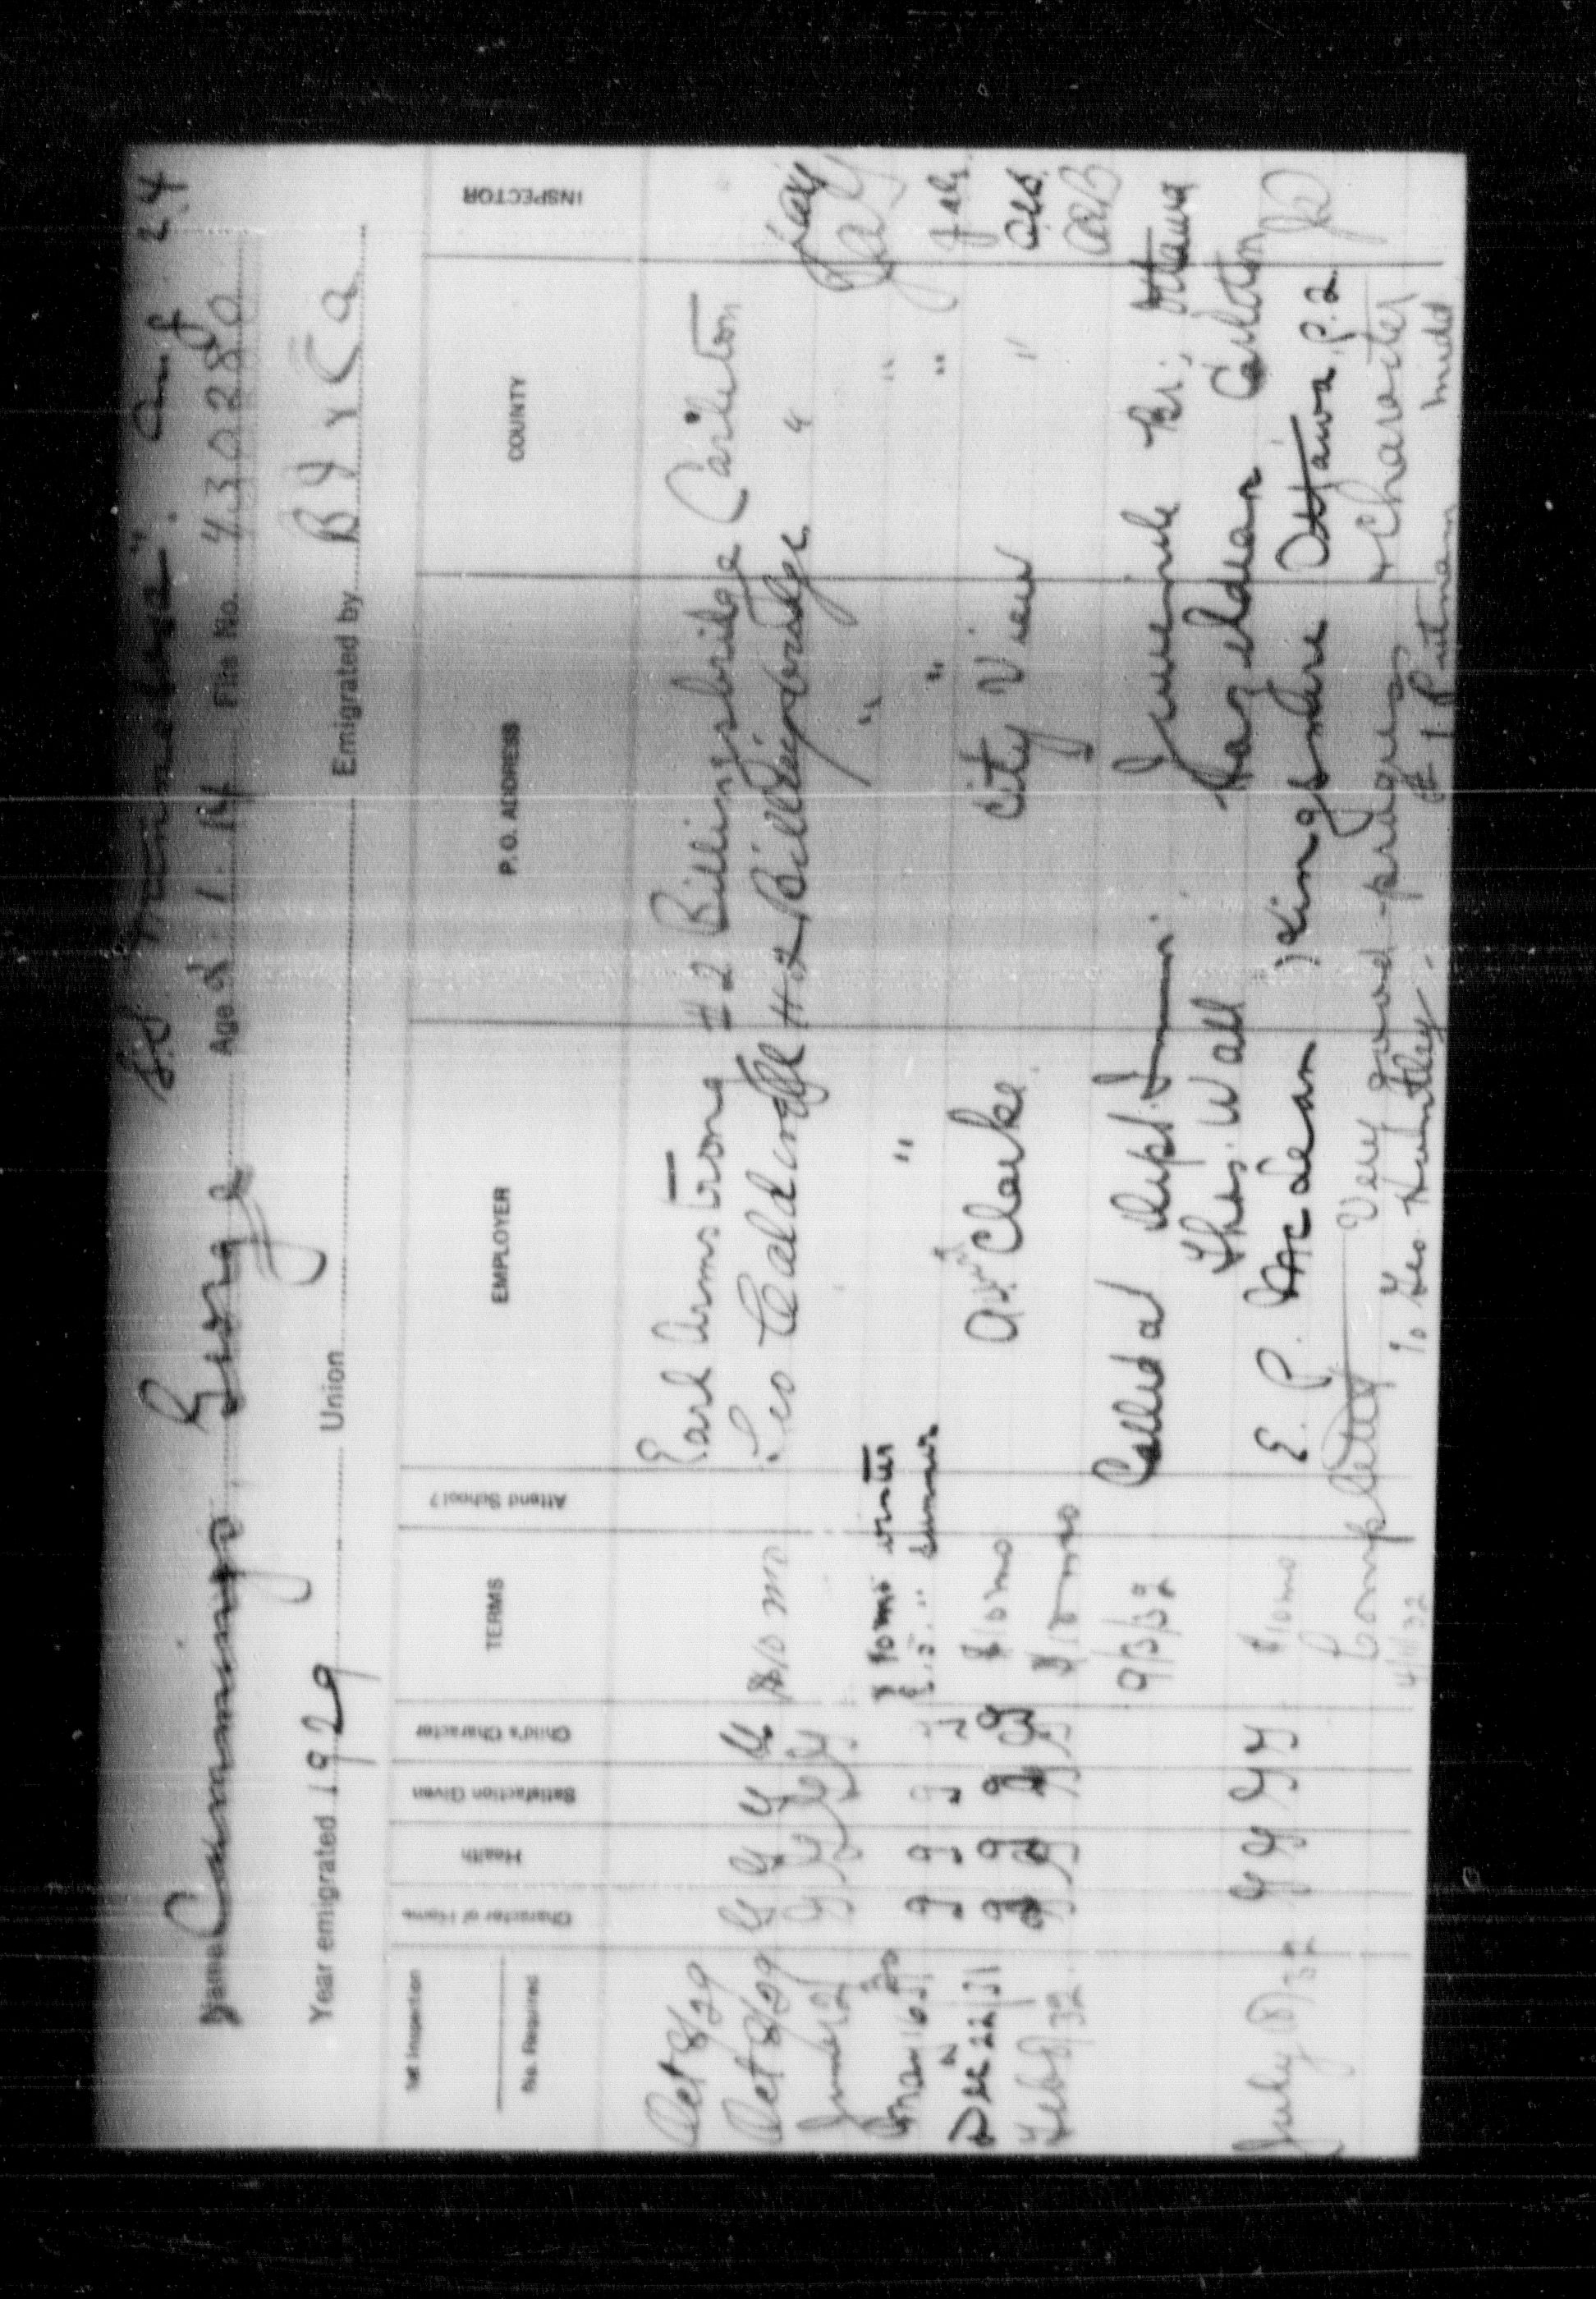 S.S. "Minnedosa". Aug 24
Name Cummings, George Age d 1.14 File No. 430280
Year emigrated 1929 Union Emigrated by B I x C a
1st Inspection
No. Required
Character of Home
Health
Satisfaction Given
Child's Character
TERMS
Attend School?
EMPLOYER
P. O. ADDRESS
COUNTY
INSPECTOR
Oct 8/29 Earl Armstrong #2 Billingsbridge Carleton
Oct 8/29 G G G G $10 mo Leo Caldwell #2 Billingsbridge "
June G G G G "
May 16 31 g g g g $ 10 mo winter " " "
$ 15 " summer
Dec 22/31 g g g g $10 mo A. Clarke City View "
Feb 8/32 g g g g $10 mo
9/3/32 Called at Dept Juvenile Br., Ottawa
Thos. Wall Hazeldean Carleton
July 18/32 G G G G $10 mo E. P. McLean Kingsmere Ottawa P.Q.
Completed Very good progress & Character
4/11/32 To Geo Huntley. R 1 Putnam Midd